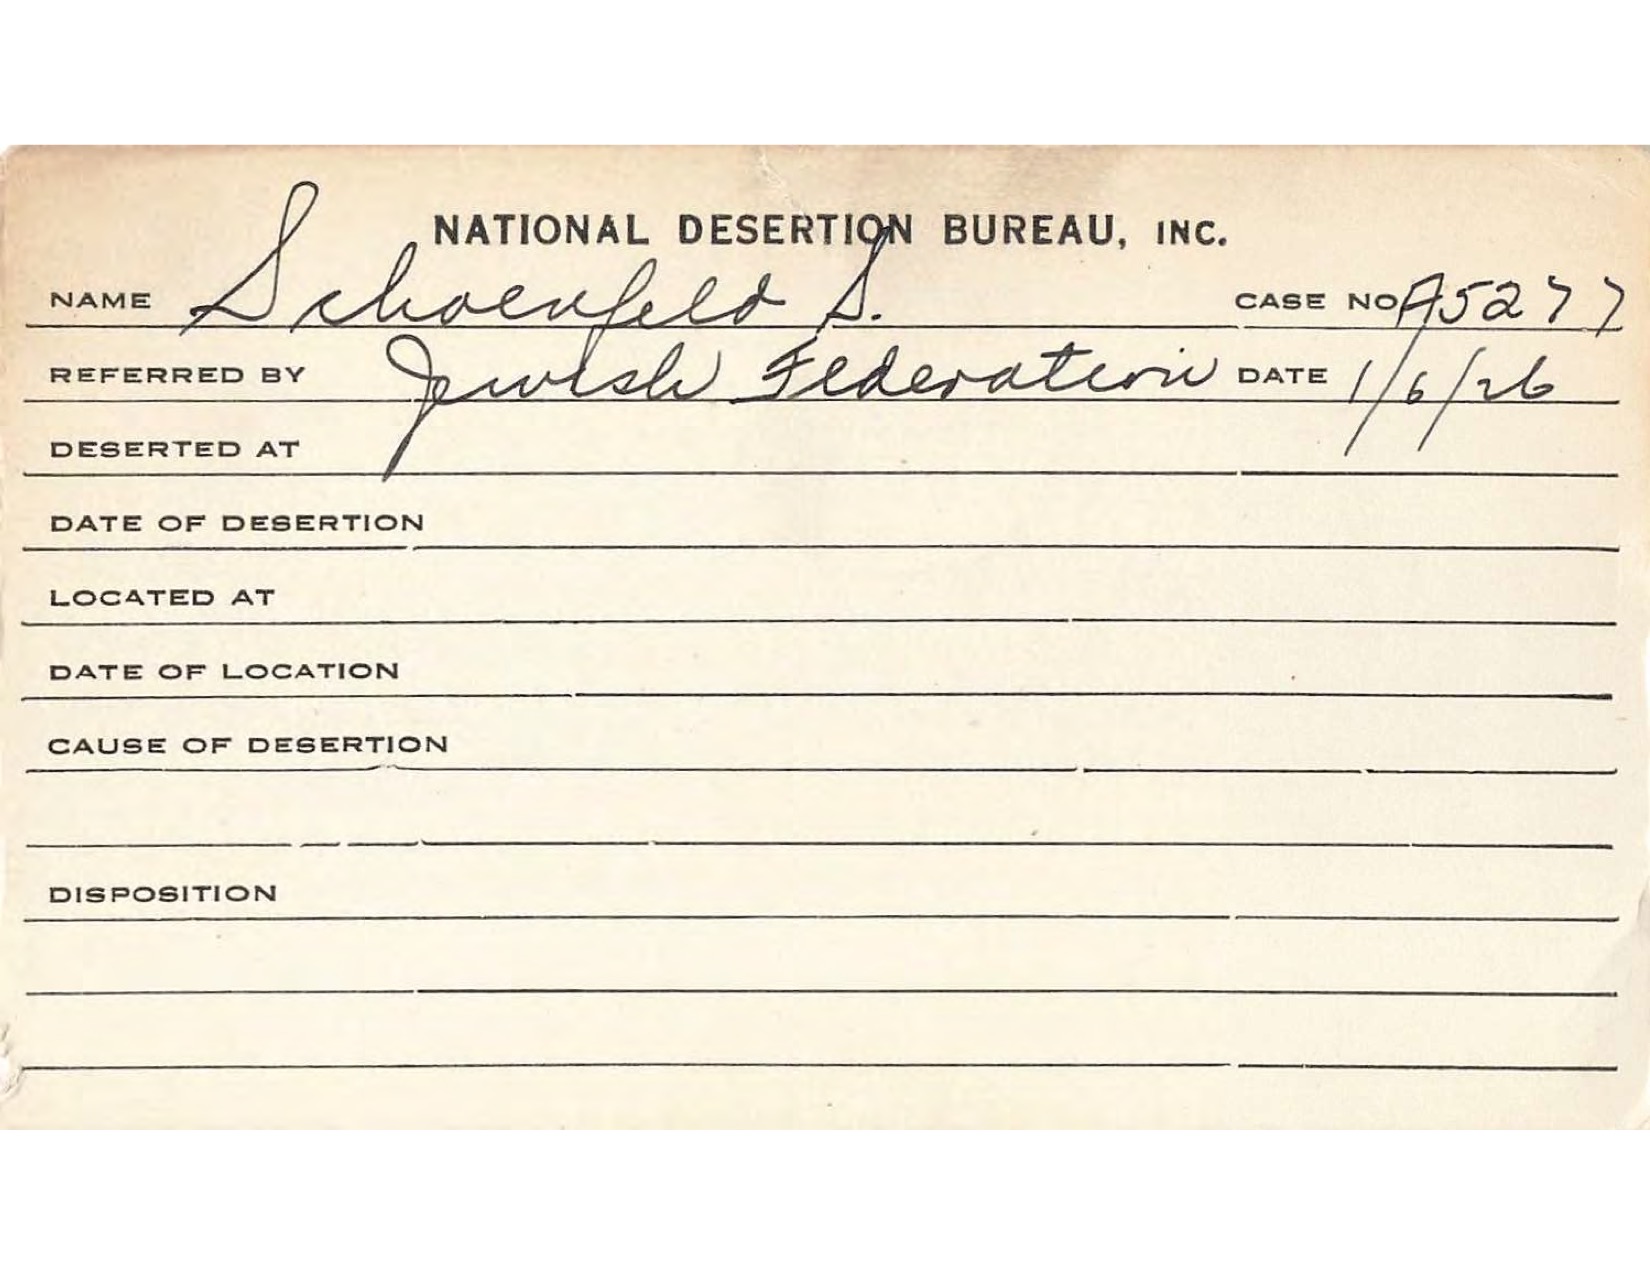 NATIONAL DESERTION BUREAU, INC.
NAME Schoenfeld S. CASE NO A5277
REFERRED BY Jewish Federation DATE 1/6/26
DESERTED AT
DATE OF DESERTION
LOCATED AT
DATE OF LOCATION
CAUSE OF DESERTION
DISPOSITION